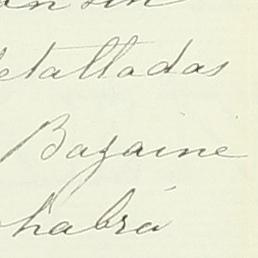 sin
detalladas
Bazaine
habrá